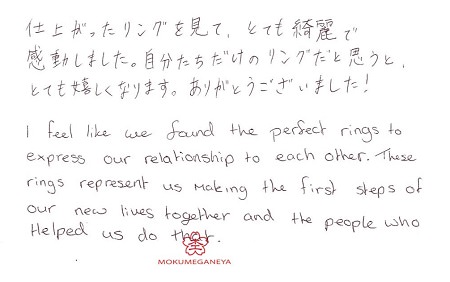 仕上がったリングを見て、とても綺麗で
感動しました。自分たちだけのリングだと思うと、
とても嬉しくなります。ありがとうございました！
I feel like we found the perfect rings to
express our relationship to each other. These
rings represent us making the first steps of
our new lives together and the people who
Helped us do that.
MOKUMEGANEYA